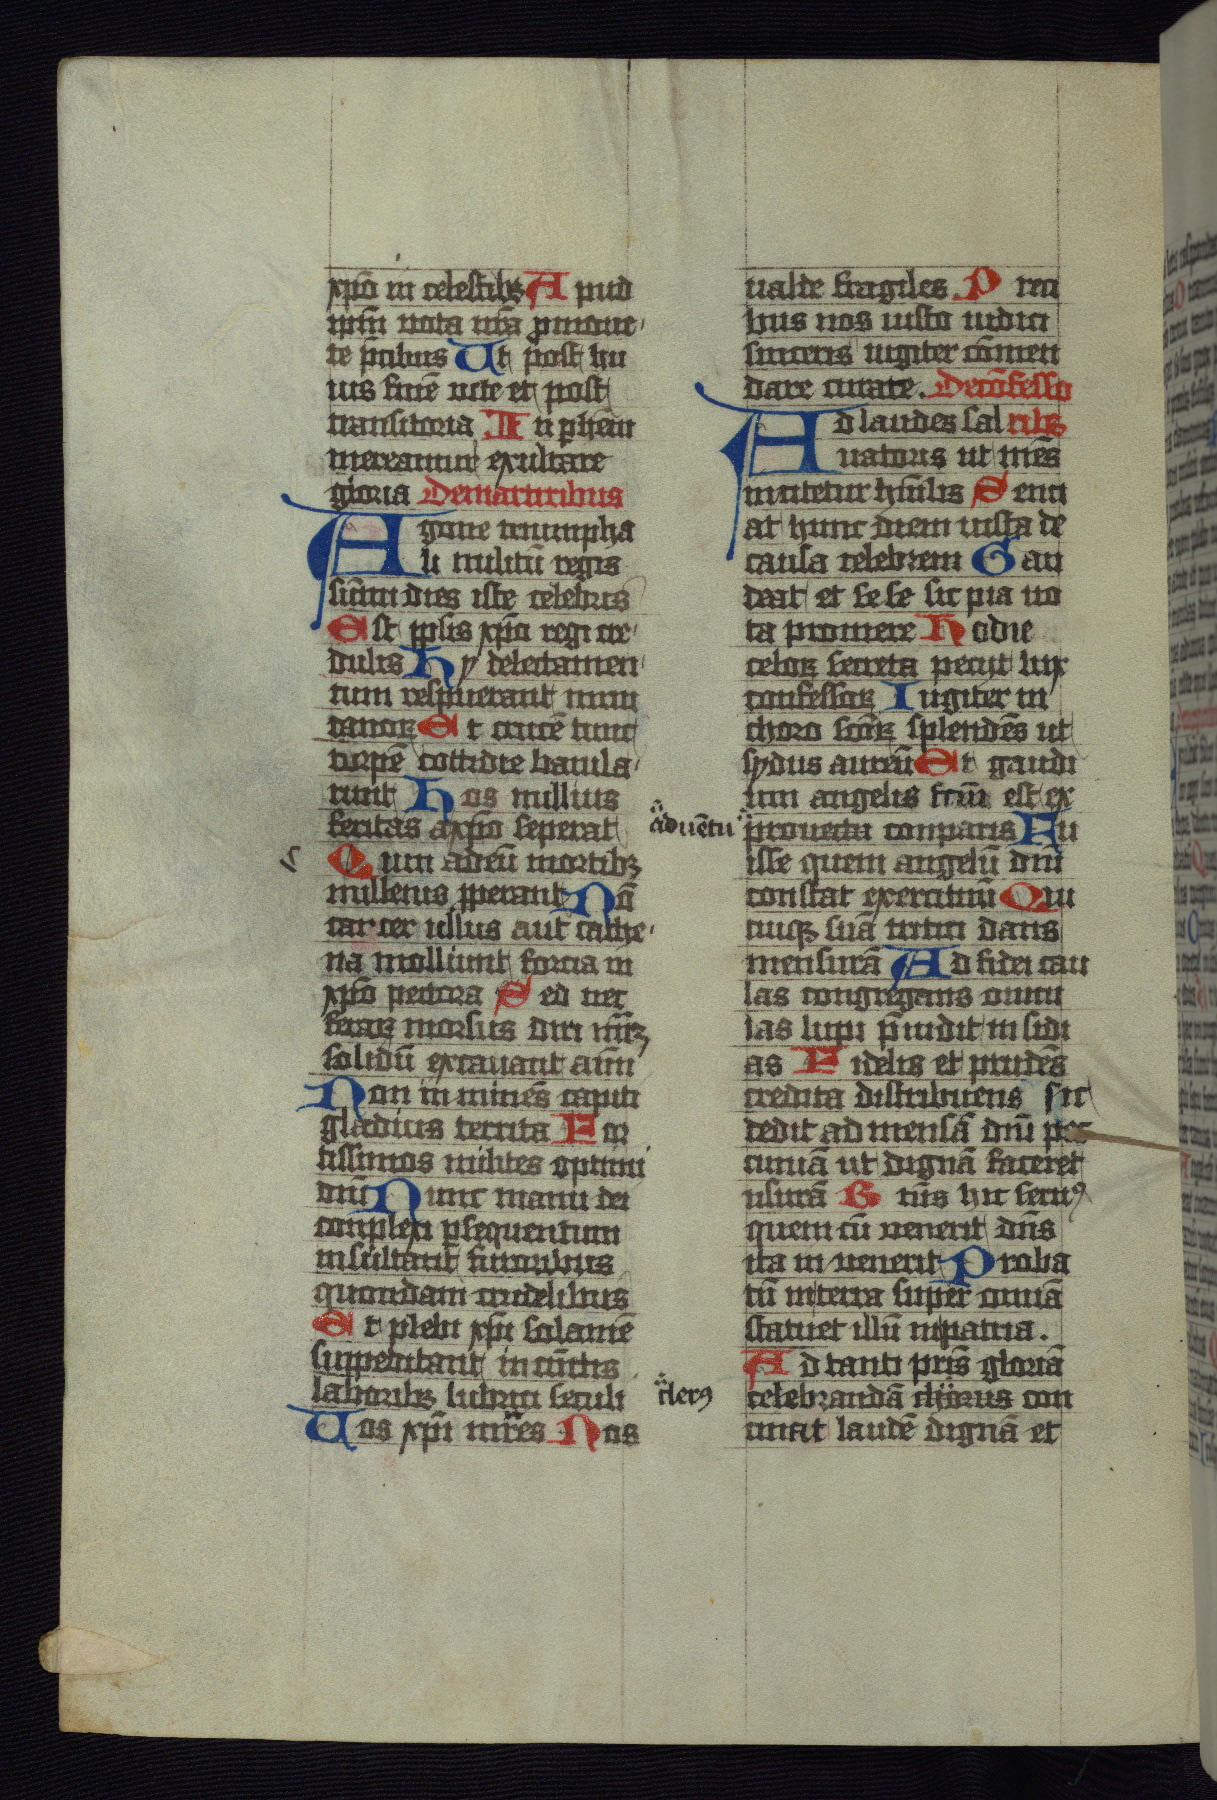 xp̄o in celestibꝫ A pud
ip̄m uota nr̄a ꝓmoue
te p̄cibus Ut post hu
ius finē uite et post
transitoria In p̱hēni
mereamur exultare
gloria De martiribus
Agone triumpha
li militū regis
sūmi dies iste celebris
Est ip̄sis xp̄o regi cre
dulis Hy delectamen
tum respuerant mun
danoꝝ Et crucē tunc
turpē cottidie baiula
runt Hos nullius
feritas a xp̄o seperat
Quin ad eū mortibꝫ
millenis ꝓperant Nō
carcer ullus aut cathe
na molliunt forcia in
xp̄o pectora Sed nec
feraꝝ morsus diri
solidū excauant aīm
Non inminēs capiti
gladius territa For
tissimos milites optimi
dn̄i Nunc manu dei
complexi ꝑsequentum
insultant furoribus
quondam crudelibus
Et plebi xp̄i solamē
suppeditant in cūctis
laboribꝫ lubrici seculi
Uos xp̄i mr̄es Nos
ualde fragiles. P reci
bus nos iusto iudici
sinceris iugiter cōmen
dare curate. De cōfesso
ribꝫ
Ad laudes sal
uatoris ut mēs
incitetur hūilis Senci
at hunc diem iusta de
causa celebrem Gau
deat et sese sic pia uo
ta promere Hodie
celoꝝ secreta peciit lux
confessoꝝ Iugiter in
choro scōꝝ splendēs ut
sydus aureū Et gaudi
um angelis fc̄m est ex
aduētu
prouectu comparis Nu
isse quem angelū dn̄i
constat exercitiū Qui
cuiqꝫ suā tritici dans
mensurā Ad fidei cau
las congregans ouicu
las lupi p̄uidit insidi
as Fidelis et prudēs
credita distribuens sic
dedit ad mensā dn̄i pec
cuniā ut dignā faceret
usurā B tūs hic seruꝰ
quem cū uenerit dn̄s
ita inuenerit Proba
tū in terra super omīa
statuet illū in patria.
Ad tanti pr̄is gloriā
clerꝰ
celebrandā chorus con
cinat laudē dignā et